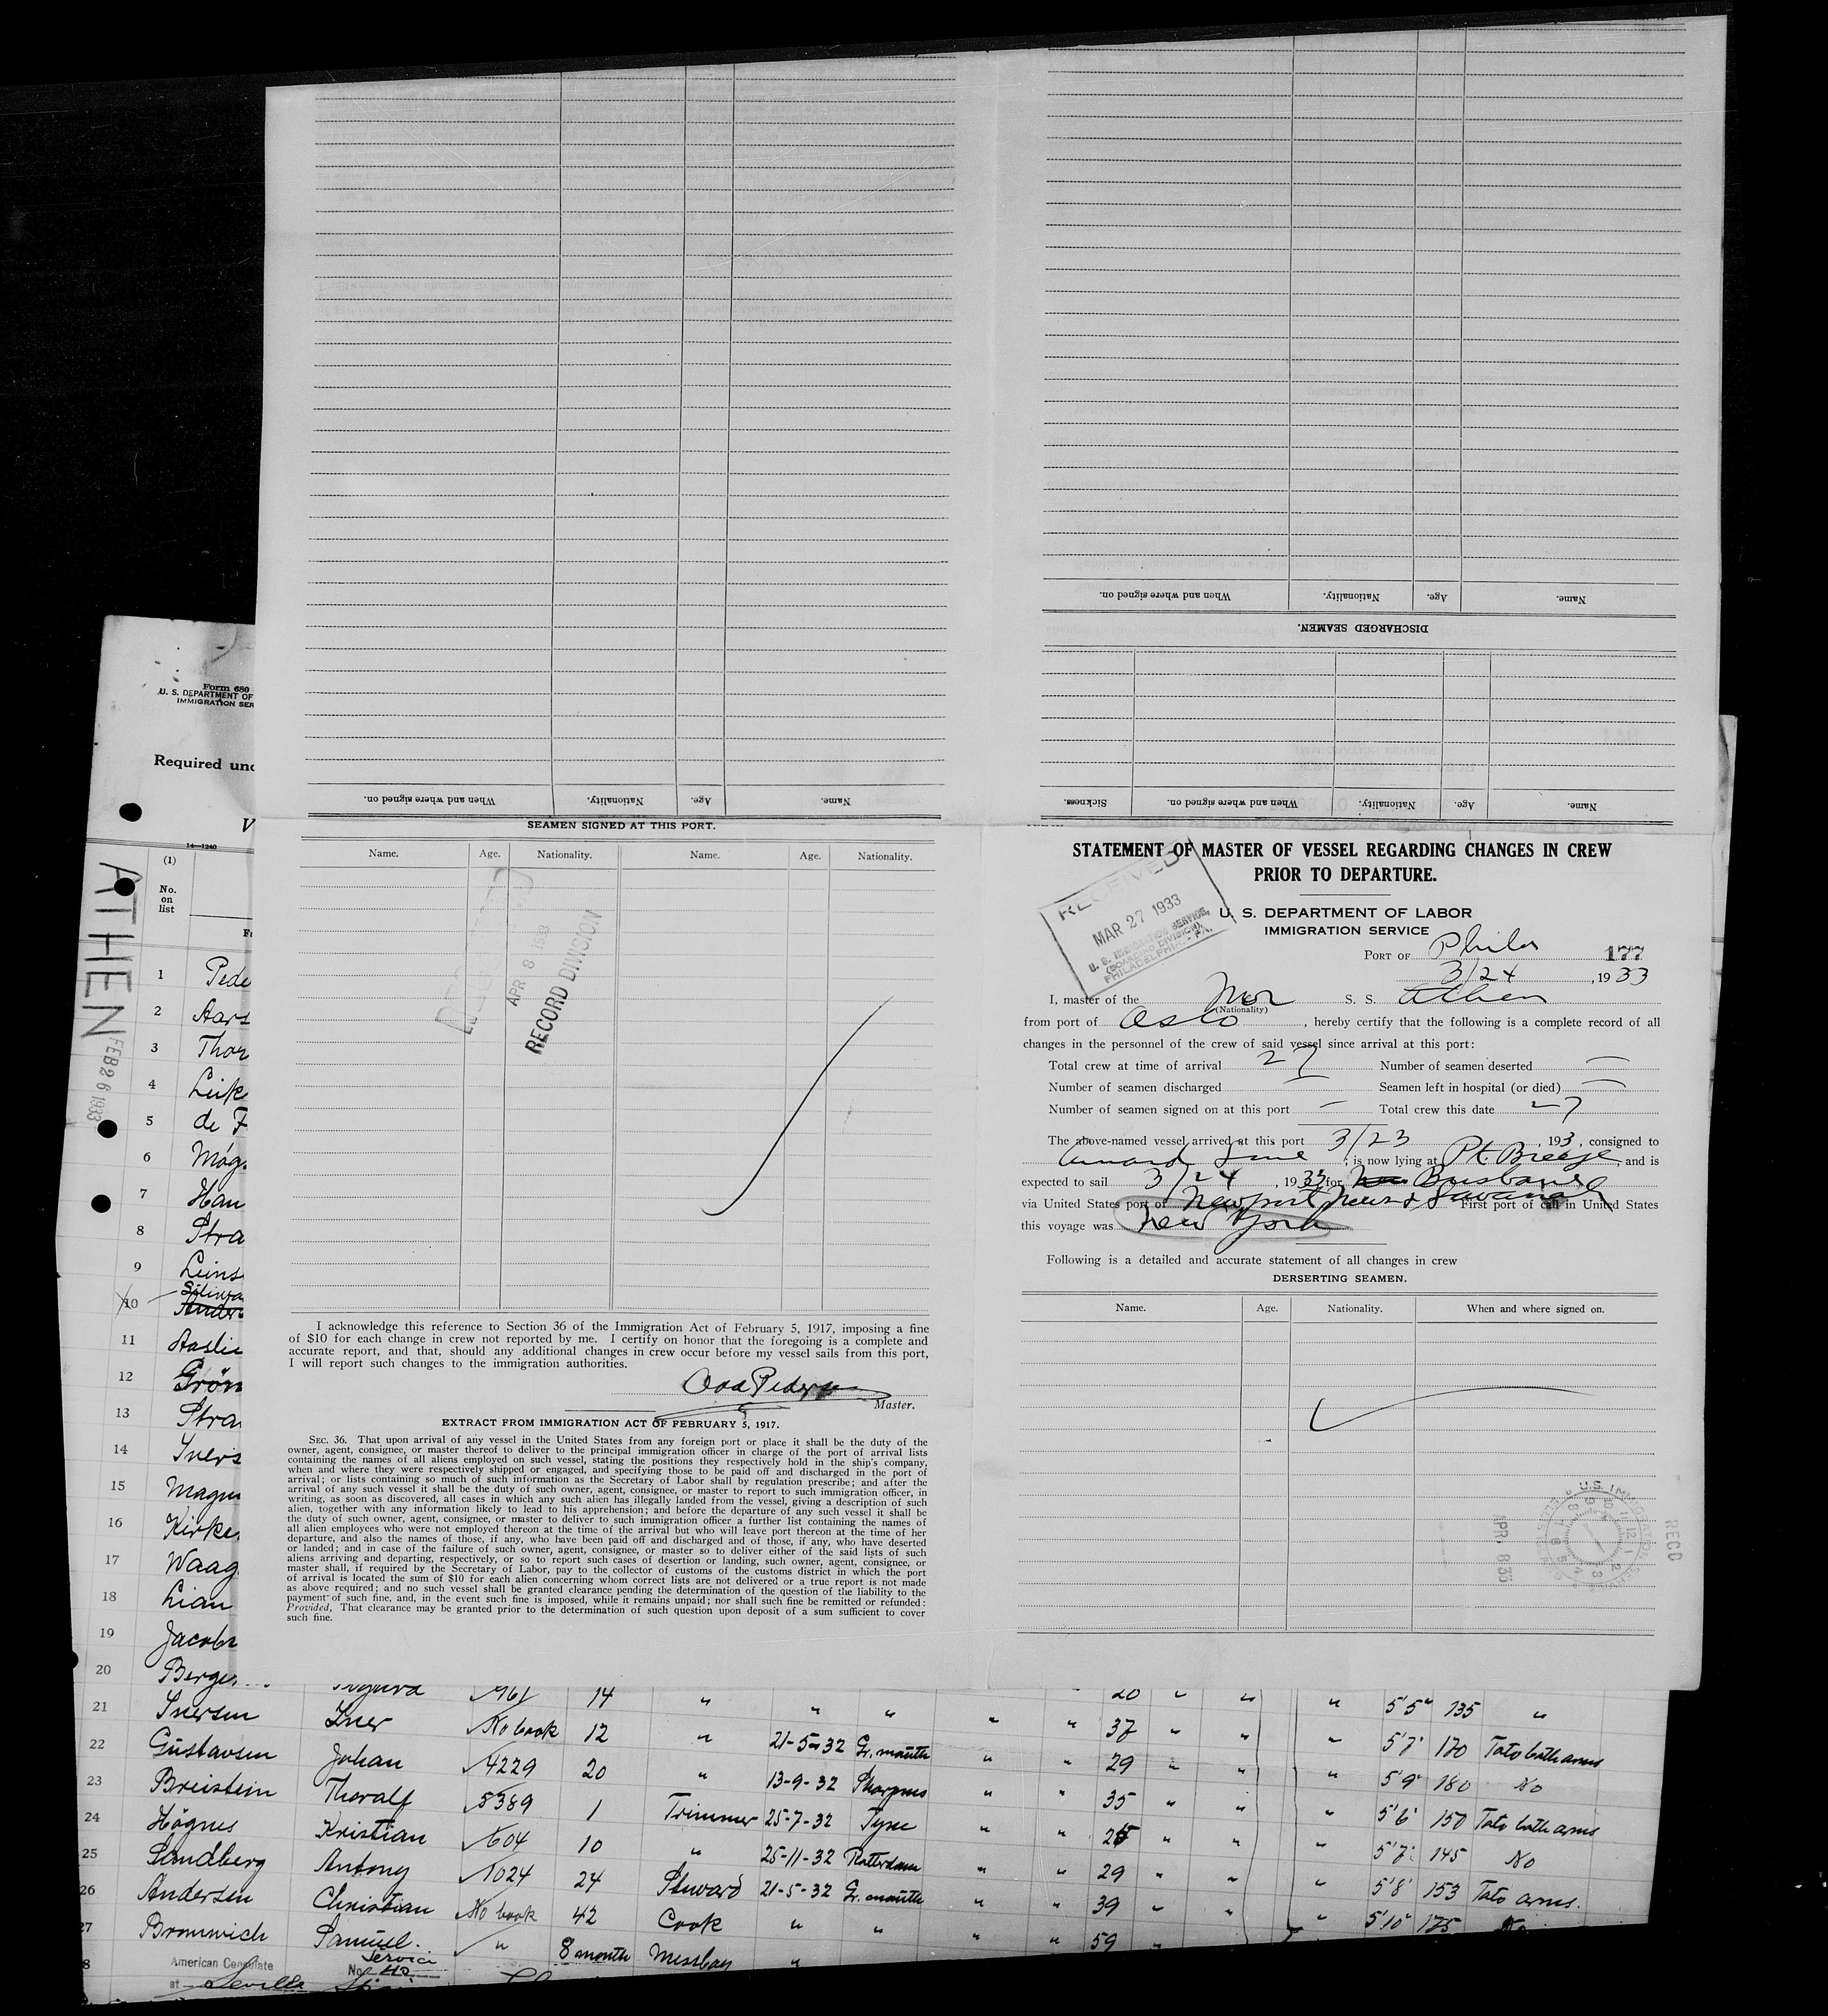 When and where signed on.
Nationality.
Age.
Name.
DISCHARGED SEAMEN.
Sickness.
When and where signed on.
Nationality.
Age.
Name.
When and where signed on.
Nationality.
Age.
Name.
Form 680
U. S. DEPARTMENT OF
IMMIGRATION SER
Required und
V
14—1240
(1)
No.
on
list
ATHEN
FEB 26 1933
1 Pede
2 Aars
3 Thor
4 Leik
5 de F
6 Mög
7 Han
8 Stra
9 Leins
10 Ander
11 Aaslie
12 Gröm
13 Stra
14 Ivers
15 Magn
16 Kirke
17 Waag
18 Lian
19 Jacobs
20 Berge
SEAMEN SIGNED AT THIS PORT.
Name. Age. Nationality. Name. Age. Nationality.
APR 8 1933
RECORD DIVISION
I acknowledge this reference to Section 36 of the Immigration Act of February 5, 1917, imposing a fine
of $10 for each change in crew not reported by me. I certify on honor that the foregoing is a complete and
accurate report, and that, should any additional changes in crew occur before my vessel sails from this port,
I will report such changes to the immigration authorities.
Odd Pedersen
Master.
EXTRACT FROM IMMIGRATION ACT OF FEBRUARY 5, 1917.
SEC. 36. That upon arrival of any vessel in the United States from any foreign port or place it shall be the duty of the
owner, agent, consignee, or master thereof to deliver to the principal immigration officer in charge of the port of arrival lists
containing the names of all aliens employed on such vessel, stating the positions they respectively hold in the ship's company,
when and where they were respectively shipped or engaged, and specifying those to be paid off and discharged in the port of
arrival; or lists containing so much of such information as the Secretary of Labor shall by regulation prescribe; and after the
arrival of any such vessel it shall be the duty of such owner, agent, consignee, or master to report to such immigration officer, in
writing, as soon as discovered, all cases in which any such alien has illegally landed from the vessel, giving a description of such
alien, together with any information likely to lead to his apprehension; and before the departure of any such vessel it shall be
the duty of such owner, agent, consignee, or master to deliver to such immigration officer a further list containing the names of
all alien employees who were not employed thereon at the time of the arrival but who will leave port thereon at the time of her
departure, and also the names of those, if any, who have been paid off and discharged and of those, if any, who have deserted
or landed; and in case of the failure of such owner, agent, consignee, or master so to deliver either of the said lists of such
aliens arriving and departing, respectively, or so to report such cases of desertion or landing, such owner, agent, consignee, or
master shall, if required by the Secretary of Labor, pay to the collector of customs of the customs district in which the port
of arrival is located the sum of $10 for each alien concerning whom correct lists are not delivered or a true report is not made
as above required; and no such vessel shall be granted clearance pending the determination of the question of the liability to the
payment of such fine, and, in the event such fine is imposed, while it remains unpaid; nor shall such fine be remitted or refunded:
Provided, That clearance may be granted prior to the determination of such question upon deposit of a sum sufficient to cover
such fine.
STATEMENT OF MASTER OF VESSEL REGARDING CHANGES IN CREW
PRIOR TO DEPARTURE.
RECEIVED
MAR 27 1933
U. S. IMMIGRATION SERVICE,
(BOARDING DIVISION)
PHILADELPHIA, - PA.
U. S. DEPARTMENT OF LABOR
IMMIGRATION SERVICE
PORT OF Phila 177
3/24, 1933
I, master of the Nor S. S. Athen
(Nationality)
from port of Oslo, hereby certify that the following is a complete record of all
changes in the personnel of the crew of said vessel since arrival at this port:
Total crew at time of arrival 27 Number of seamen deserted —
Number of seamen discharged — Seamen left in hospital (or died) —
Number of seamen signed on at this port — Total crew this date 27
The above-named vessel arrived at this port 3/23, 193, consigned to
Line, is now lying at Pt. Breeze, and is
expected to sail 3/24, 1933, for Brisbane
via United States port of Newport News & Savanah First port of call in United States
this voyage was New York
Following is a detailed and accurate statement of all changes in crew
DERSERTING SEAMEN.
Name. Age. Nationality. When and where signed on.
U.S. IMMIGRATION
APR. 8 33
RECD
961 14 " " " " 20 " " " 5'5" 135 "
21 Iversen Iver No book 12 " 21-5-32 Gr. mouth " " 37 " " " 5'7" 170 Tato both arms
22 Gustavsen Johan 4229 20 " 13-9-32 " " 29 " " " 5'9" 180 No
23 Breistein Thoralf 5389 1 Trimmer 25-7-32 Tyne " " 35 " " " 5'6" 150 Tato both arms
24 Högnes Kristian 604 10 " 25-11-32 Rotterdam " " 25 " " " 5'7" 145 No
25 Sandberg Antony 1024 24 Steward 21-5-32 Gr. mouth " " 29 " " " 5'8" 153 Tato arms.
26 Andersen Christian No book 42 Cook " " " " 39 " " " 5'10" 175 No
27 Bromwich Samuel. " 8 month Messboy " 59 "
8 American Consulate Service
No.
at Seville